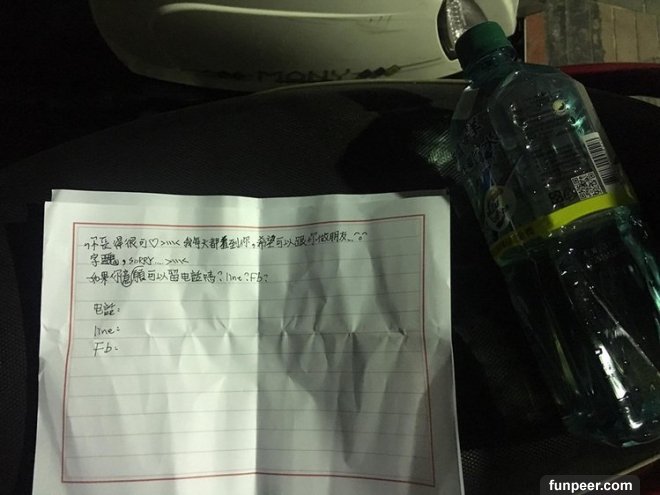 MANY
你長得很可♡>///< 我每天都看到你,希望可以跟你做朋友..^o^
字醜,SORRY...>///<
如果你願意可以留电話嗎?line?Fb?
电話:
line:
Fb:
funpeer.com